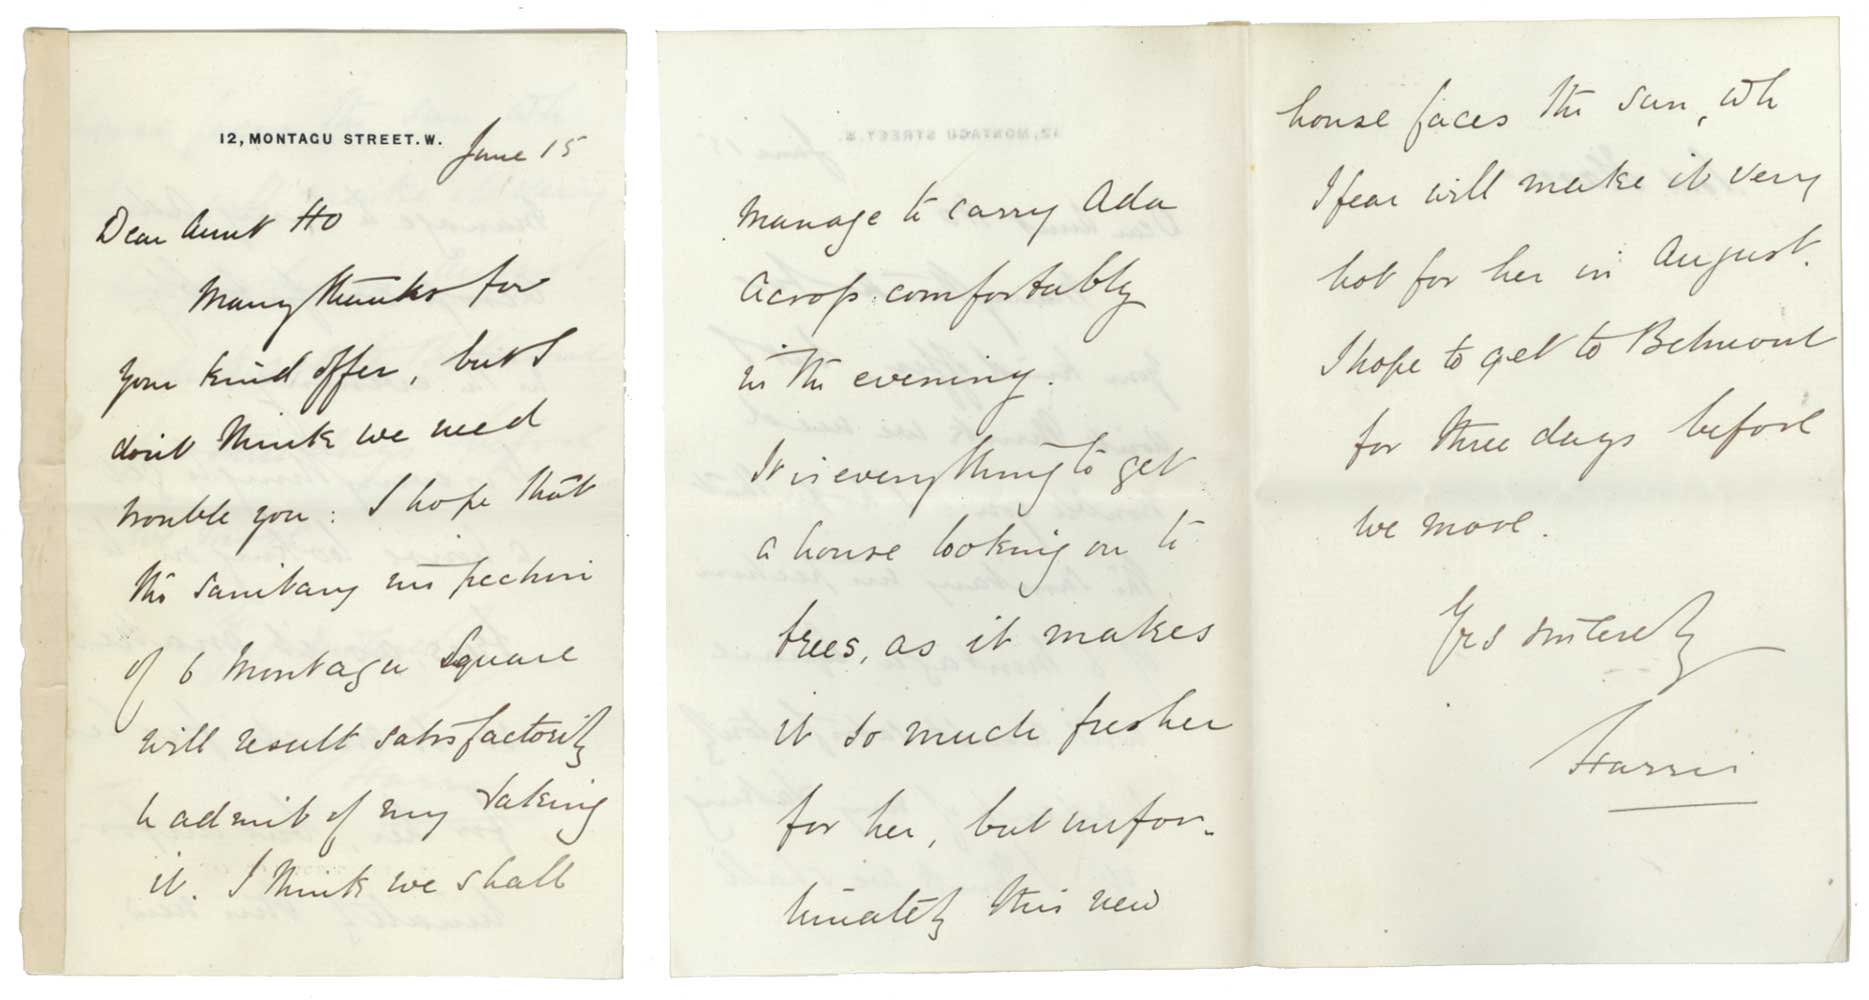 12, MONTAGU STREET. W.
June 15
Dear Aunt Ho
Many thanks for
your kind offer, but I
don't think we need
trouble you: I hope that
the sanitary inspection
of 6 Montagu Square
will result satisfactorily
& admit of my taking
it. I think we shall
manage to carry Ada
across comfortably
in the evening.
It is everything to get
a house looking on to
trees, as it makes
it so much fresher
for her, but unfor-
tunately this new
house faces the sun, wh
I fear will make it very
hot for her in August.
I hope to get to Belmont
for three days before
we move.
Yrs sincerely
Harris